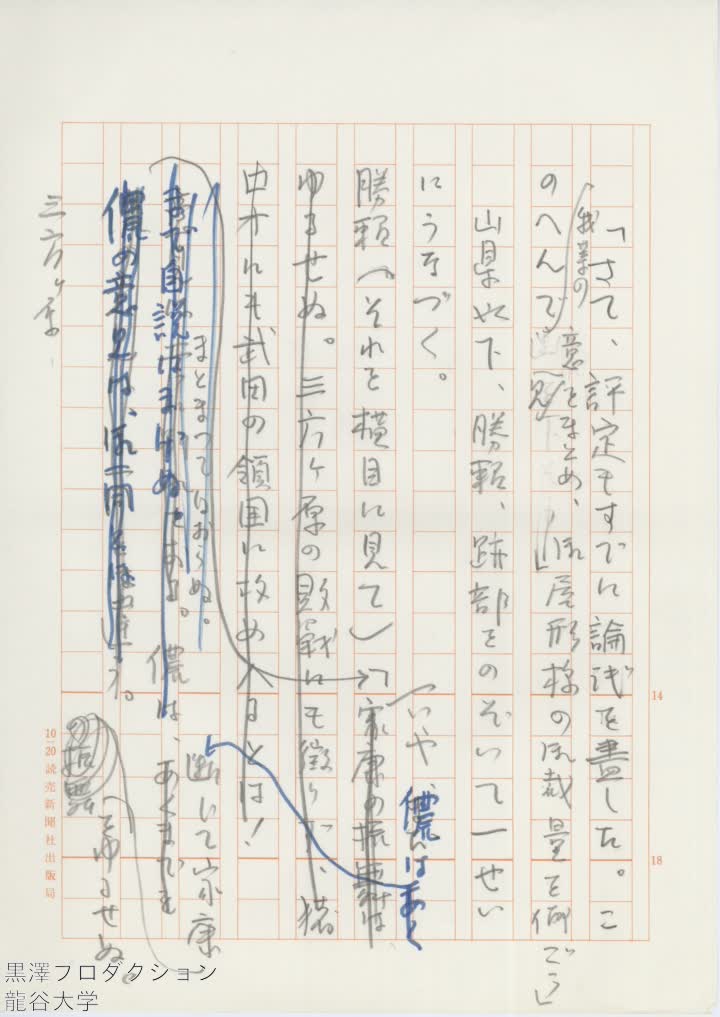 「さて、評定もすでに論議を盡した。こ
のへんで
我等の
意をまとめ、
御屋形様の御裁量を仰ごう」
山県以下、勝頼、跡部をのぞいて一せい
にうなづく。
「いや、
儂はあく
勝頼（それを横目に見て）「家康の振舞は
ゆるせぬ。三方ヶ原の敗戦にも懲りず、
われも武田の領国に攻め入るとは！
まとまってはおらぬ。
断じて家康
まで自説はまげぬ
儂は、あくまでも
儂の意見は、御一同とは違う。
の振舞
をゆるせぬ。
三方ヶ原
14
18
10
20
読売新聞社出版局
黒澤プロダクション
龍谷大学